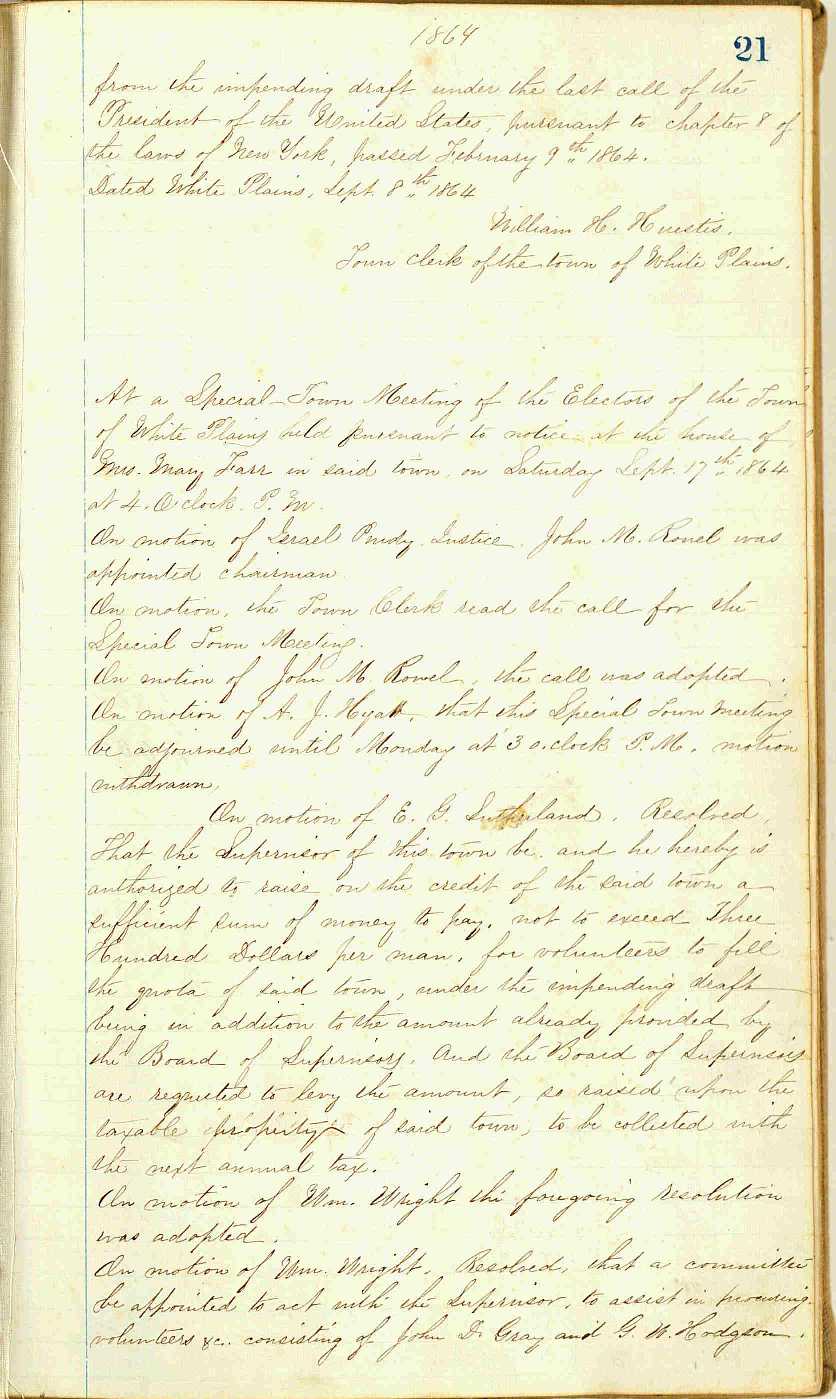 1864
21
from the impending draft under the last call of the
President of the United States, pursuant to chapter 8 of
the laws of New York, passed February 9th 1864.
Dated White Plains, Sept. 8th 1864
William H. Huestis.
Town Clerk of the town of White Plains.
At a Special Town Meeting of the Electors of the Town
of White Plains held pursuant to notice at the house of
Mrs. Mary Farr in said town, on Saturday Sept. 17th 1864
at 4. O'clock. P. M.
On motion of Israel Purdy. Justice. John M. Rowel was
appointed chairman
On motion, the Town Clerk read the call for the
Special Town Meeting.
On motion of John M. Rowel, the call was adopted.
On motion of A. J. Hyatt, that this Special Town Meeting
be adjourned until Monday at 3 o.clock P. M. motion
withdrawn,
On motion of E. G. Sutherland. Resolved,
That the Supervisor of this town be. and he hereby is
authorized to raise on the credit of the said town a
sufficient sum of money to pay, not to exceed Three
Hundred Dollars per man, for volunteers to fill
the quota of said town, under the impending draft
being in addition to the amount already provided by
the Board of Supervisors. And the Board of Supervisors
are requested to levy the amount, so raised upon the
taxable property of said town, to be collected with
the next annual tax.
On motion of Wm. Wright the foregoing resolution
was adopted.
On motion of Wm. Wright. Resolved, that a committee
be appointed to act with the Supervisor, to assist in procuring
volunteers &c. consisting of John D. Gray and G. W. Hodgson.